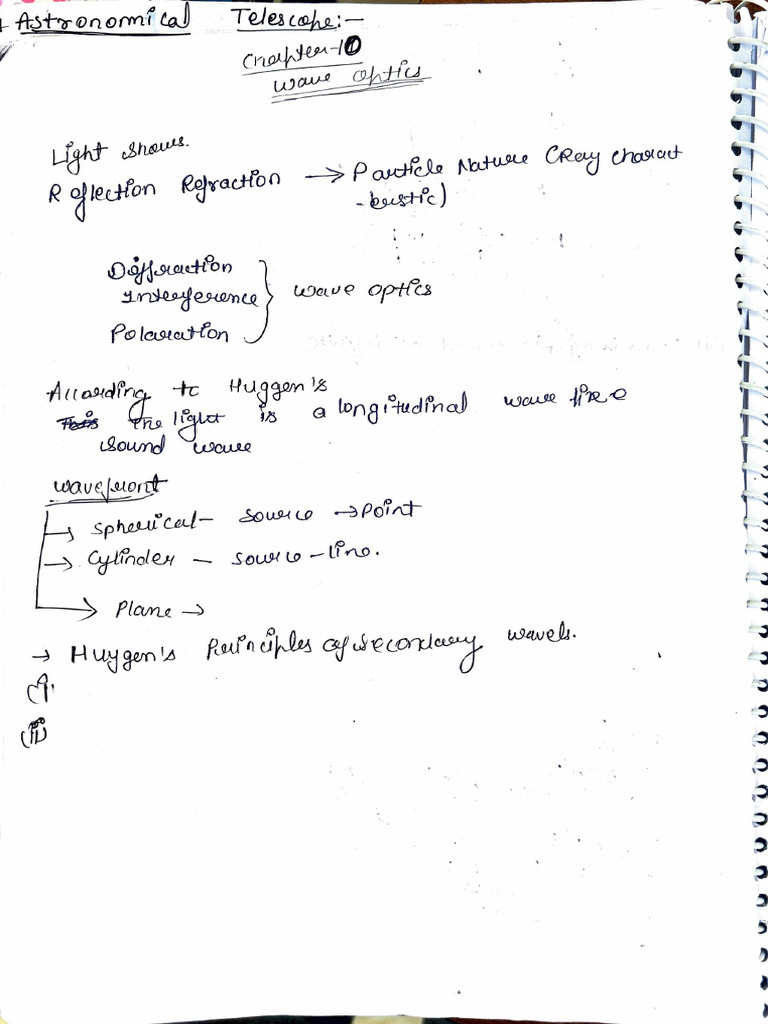 Astronomical Telescope:-
Chapter-10
Wave Optics
Light Shows.
Reflection Refraction → Particle Nature (Ray charact
-beristic)
Diffraction
Interference
Polaration
Wave Optics
According to Huggen's
the light is a longitudinal wave like
sound wave
Wavefront
→ Spherical- source → Point
→ Cylinder - source - line.
→ Plane →
→ Huygen's Principles of secondary wavels.
(i)
(ii)